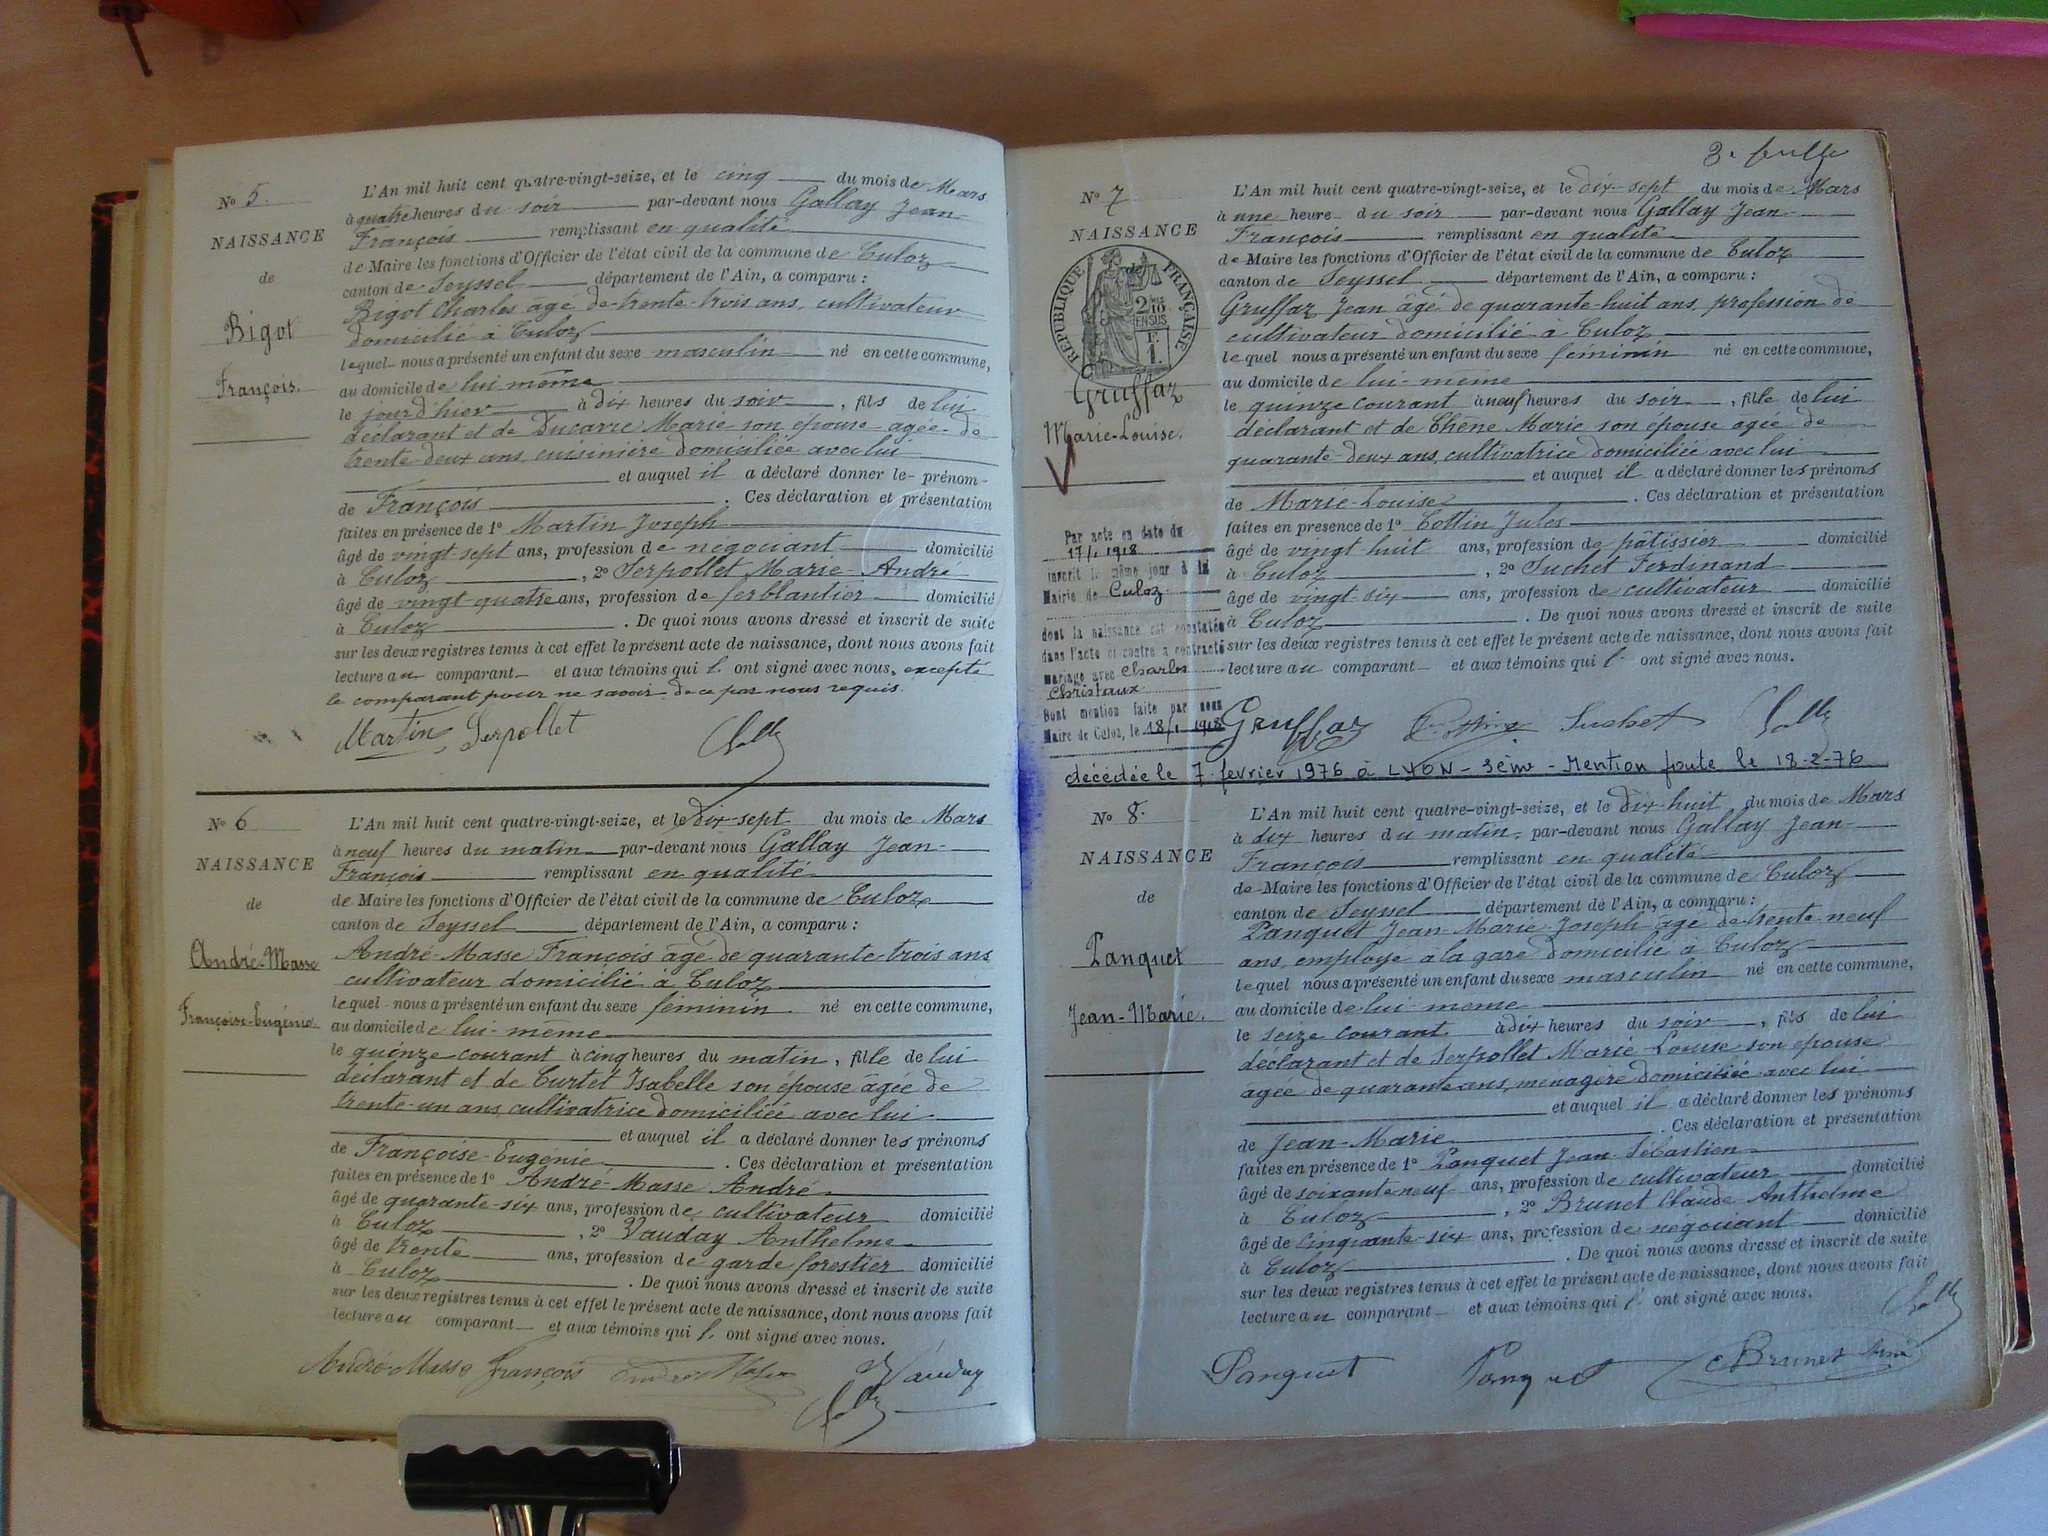 No 5.
NAISSANCE
de
Bigot
François.
L'An mil huit cent quatre-vingt-seize, et le cinq du mois de Mars
à quatre heures du soir par-devant nous Gallay Jean
François remplissant en qualité
de Maire les fonctions d'Officier de l'état civil de la commune de Culoz
canton de Seyssel département de l'Ain, a comparu :
Bigot Charles âgé de trente-trois ans, cultivateur
domicilié à Culoz
lequel nous a présenté un enfant du sexe masculin né en cette commune,
au domicile de lui même
le jour d'hier à dix heures du soir, fils de lui
déclarant et de Ducarre Marie son épouse agée de
trente-deux ans, cuisinière domiciliée avec lui
et auquel il a déclaré donner le prénom
de François. Ces déclaration et présentation
faites en présence de 1° Martin Joseph
âgé de vingt-sept ans, profession de négociant domicilié
à Culoz, 2° Serpollet Marie-André
âgé de vingt-quatre ans, profession de ferblantier domicilié
à Culoz. De quoi nous avons dressé et inscrit de suite
sur les deux registres tenus à cet effet le présent acte de naissance, dont nous avons fait
lecture au comparant et aux témoins qui l' ont signé avec nous, excepté
le comparant pour ne savoir de ce par nous requis.
Martin Serpollet
No 6
NAISSANCE
de
André-Masse
Françoise-Eugénie.
L'An mil huit cent quatre-vingt-seize, et le dix-sept du mois de Mars
à neuf heures du matin par-devant nous Gallay Jean-
François remplissant en qualité
de Maire les fonctions d'Officier de l'état civil de la commune de Culoz
canton de Seyssel département de l'Ain, a comparu :
André-Masse François âgé de quarante-trois ans
cultivateur domicilié à Culoz
lequel nous a présenté un enfant du sexe féminin né en cette commune,
au domicile de lui-meme
le quinze courant à cinq heures du matin, fille de lui
déclarant et de Curtet Isabelle son épouse âgée de
trente-un ans, cultivatrice domiciliée avec lui
et auquel il a déclaré donner les prénoms
de Françoise-Eugénie. Ces déclaration et présentation
faites en présence de 1° André-Masse André
âgé de quarante-six ans, profession de cultivateur domicilié
à Culoz, 2° Vauday Anthelme
âgé de trente ans, profession de garde forestier domicilié
à Culoz. De quoi nous avons dressé et inscrit de suite
sur les deux registres tenus à cet effet le présent acte de naissance, dont nous avons fait
lecture au comparant et aux témoins qui l' ont signé avec nous.
André-Masse François Vauday
3e feuille
No 7
NAISSANCE
de
RÉPUBLIQUE FRANÇAISE
2/10 EN SUS
F. 1.
Gruffaz
Marie-Louise.
Par acte en date du
17/1 1918
inscrit le même jour à la
Mairie de Culoz
dont la naissance est constatée
dans l'acte ci contre a contracté
mariage avec Charles
Christaux
Dont mention faite par nous
Maire de Culoz, le 18/1 1918
L'An mil huit cent quatre-vingt-seize, et le dix-sept du mois de Mars
à une heure du soir par-devant nous Gallay Jean
François remplissant en qualité
de Maire les fonctions d'Officier de l'état civil de la commune de Culoz
canton de Seyssel département de l'Ain, a comparu :
Gruffaz Jean âgé de quarante-huit ans, profession de
cultivateur domicilié à Culoz
lequel nous a présenté un enfant du sexe féminin né en cette commune,
au domicile de lui-même
le quinze courant à neuf heures du soir, fille de lui
déclarant et de Chêne Marie son épouse agée de
quarante-deux ans, cultivatrice domiciliée avec lui
et auquel il a déclaré donner les prénoms
de Marie-Louise. Ces déclaration et présentation
faites en présence de 1° Cottin Jules
âgé de vingt huit ans, profession de pâtissier domicilié
à Culoz, 2° Suchet Ferdinand
âgé de vingt-six ans, profession de cultivateur domicilié
à Culoz. De quoi nous avons dressé et inscrit de suite
sur les deux registres tenus à cet effet le présent acte de naissance, dont nous avons fait
lecture au comparant et aux témoins qui l' ont signé avec nous.
Gruffaz Suchet
décédée le 7 février 1976 à LYON - 3ème - Mention faite le 18-2-76
No 8.
NAISSANCE
de
Panquet
Jean-Marie.
L'An mil huit cent quatre-vingt-seize, et le dix-huit du mois de Mars
à dix heures du matin, par-devant nous Gallay Jean-
François remplissant en qualité
de Maire les fonctions d'Officier de l'état civil de la commune de Culoz
canton de Seyssel département de l'Ain, a comparu :
Panquet Jean-Marie-Joseph âgé de trente-neuf
ans, employé à la gare domicilié à Culoz
lequel nous a présenté un enfant du sexe masculin né en cette commune,
au domicile de lui-meme
le seize courant à dix heures du soir, fils de lui
déclarant et de Serpollet Marie-Louise son épouse
âgée de quarante ans, ménagère domiciliée avec lui
et auquel il a déclaré donner les prénoms
de Jean-Marie. Ces déclaration et présentation
faites en présence de 1° Panquet Jean-Sébastien
âgé de soixante-neuf ans, profession de cultivateur domicilié
à Culoz, 2° Brunet Claude Anthelme
âgé de cinquante-six ans, profession de négociant domicilié
à Culoz. De quoi nous avons dressé et inscrit de suite
sur les deux registres tenus à cet effet le présent acte de naissance, dont nous avons fait
lecture au comparant et aux témoins qui l' ont signé avec nous.
Panquet Panquet Brunet